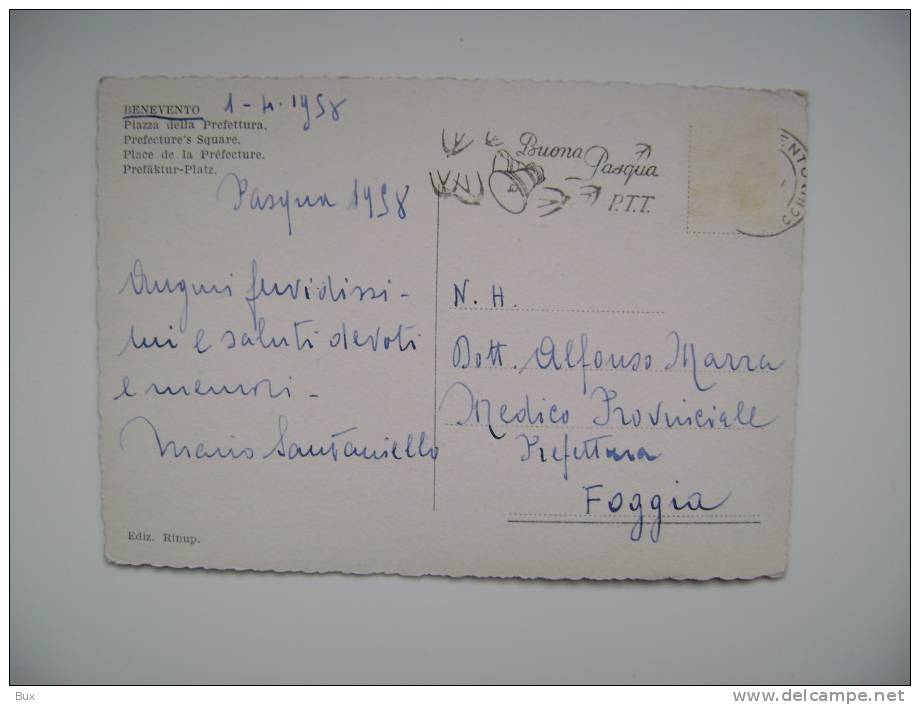 BENEVENTO 1-4-1958
Piazza della Prefettura.
Prefecture's Square.
Place de la Préfecture.
Prefäktur-Platz.
Pasqua 1958
Auguri fervidissi-
mi e saluti devoti
e memori -
Mario Santaniello
Ediz. Rinup.
Buona Pasqua
P.T.T.
N. H.
Dott. Alfonso Marra
Medico Provinciale
Prefettura
Foggia
Bux
www.delcampe.net